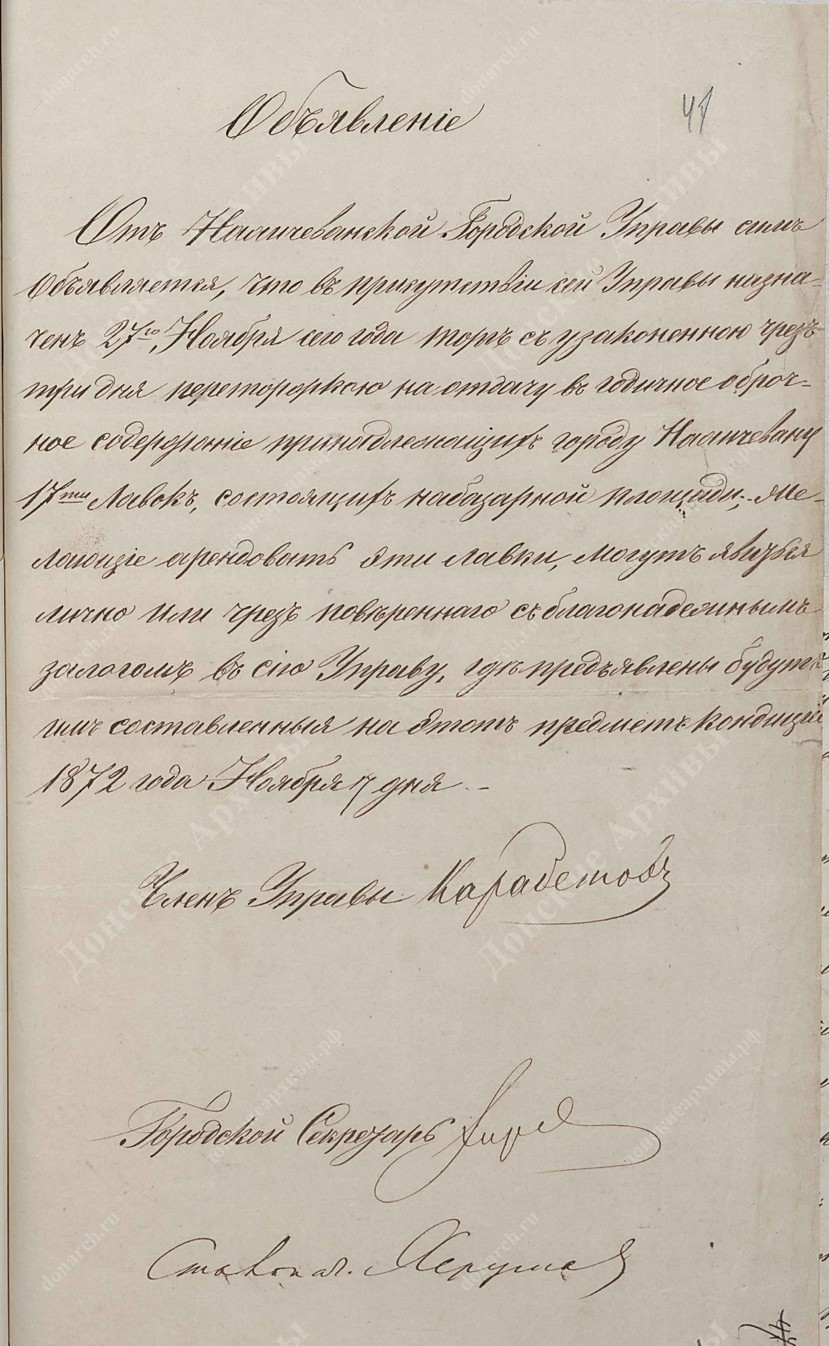 Объявленіе
47
Отъ Нахичеванской Городской Управы симъ
объявляется, что въ присутствіи сей Управы назна-
ченъ 27го, Ноября сего года торгъ съ узаконенною чрезъ
три дня переторжкою на отдачу въ годичное оброч-
ное содержаніе принадлежащихъ городу Нахичевану
17ти Лавокъ, состоящихъ на базарной площади; Же-
лающіе арендовать эти лавки, могутъ явиться
лично или чрезъ повѣреннаго съ благонадежнымъ
залогомъ въ сію Управу, гдѣ предъявлены будутъ
имъ составленныя на этотъ предметъ кондиціи
1872 года Ноября 7 дня
Членъ Управы Карабетовъ
Городской Секретарь